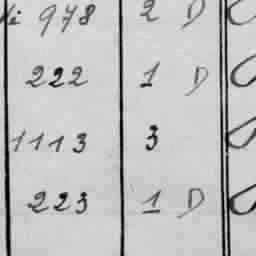 di 978 2 D
222 1 D
1113 3
223 1 D